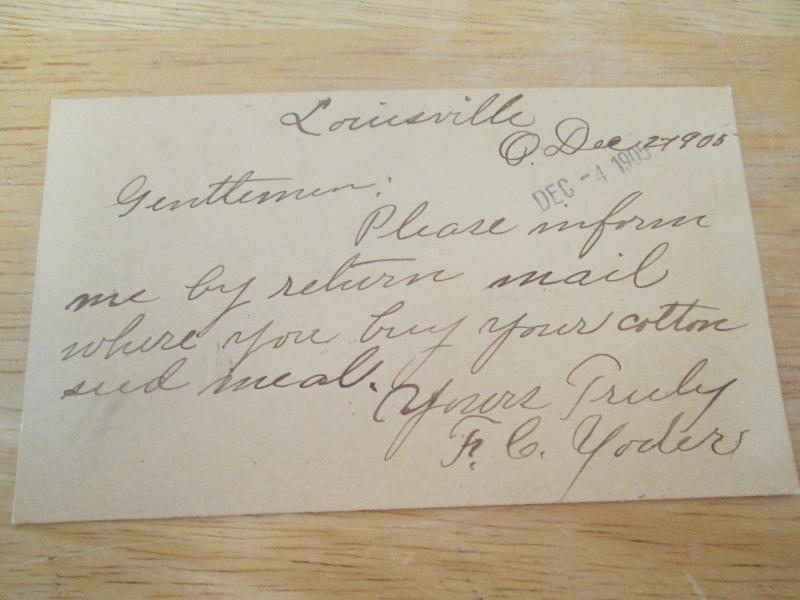 Louisville
O. Dec 2 1905
DEC -4 1905
Gentlemen:
Please inform
me by return mail
where you buy your cotton
seed meal.
Yours Truly
F. C. Yoder